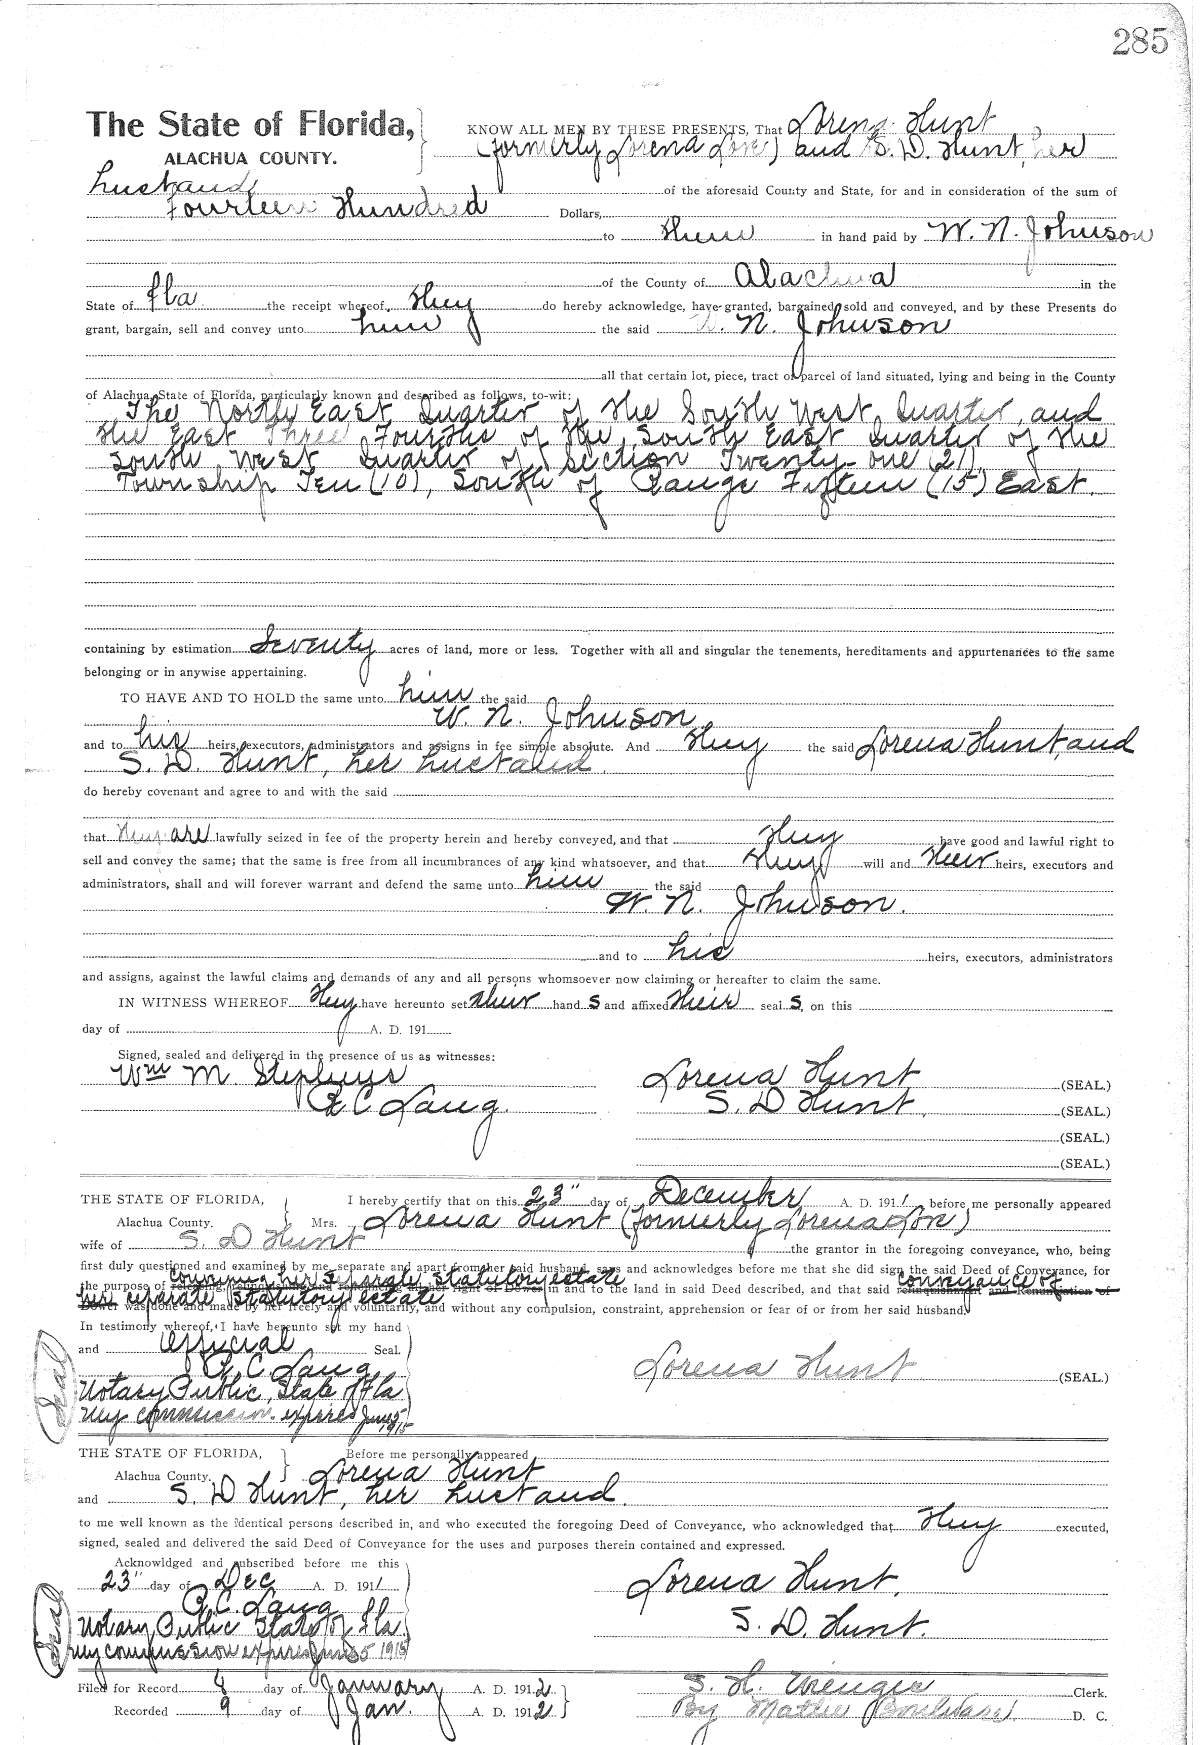 285
The State of Florida, KNOW ALL MEN BY THESE PRESENTS, That Lorena Hunt
ALACHUA COUNTY. (formerly Lorena Love) and S. D. Hunt, her
husband, of the aforesaid County and State, for and in consideration of the sum of
Fourteen Hundred Dollars,
to them in hand paid by W. N. Johnson
of the County of Alachua in the
State of Fla the receipt whereof they do hereby acknowledge, have granted, bargained, sold and conveyed, and by these Presents do
grant, bargain, sell and convey unto him the said W. N. Johnson
all that certain lot, piece, tract or parcel of land situated, lying and being in the County
of Alachua, State of Florida, particularly known and described as follows, to-wit:
The North East Quarter of the South West Quarter, and
the East Three Fourths of the South East Quarter of the
South West Quarter of Section Twenty-one (21),
Township Ten (10), South of Range Fifteen (15) East.
containing by estimation Seventy acres of land, more or less. Together with all and singular the tenements, hereditaments and appurtenances to the same
belonging or in anywise appertaining.
TO HAVE AND TO HOLD the same unto him the said
W. N. Johnson
and to his heirs, executors, administrators and assigns in fee simple absolute. And they the said Lorena Hunt, and
S. D. Hunt, her husband.
do hereby covenant and agree to and with the said
that they are lawfully seized in fee of the property herein and hereby conveyed, and that they have good and lawful right to
sell and convey the same; that the same is free from all incumbrances of any kind whatsoever, and that they will and their heirs, executors and
administrators, shall and will forever warrant and defend the same unto him the said
W. N. Johnson.
and to his heirs, executors, administrators
and assigns, against the lawful claims and demands of any and all persons whomsoever now claiming or hereafter to claim the same.
IN WITNESS WHEREOF they have hereunto set their hand s and affixed their seal s, on this
day of A. D. 191
Signed, sealed and delivered in the presence of us as witnesses:
Wm M. Stephens Lorena Hunt (SEAL.)
S. D Hunt. (SEAL.)
(SEAL.)
(SEAL.)
THE STATE OF FLORIDA, I hereby certify that on this 23" day of December, A. D. 1911, before me personally appeared
Alachua County. Mrs. Lorena Hunt (formerly Lorena Love)
wife of S. D Hunt the grantor in the foregoing conveyance, who, being
first duly questioned and examined by me, separate and apart from her said husband, says and acknowledges before me that she did sign the said Deed of Conveyance, for
conveying her separate statutory estate conveyance of
the purpose of relinquishing and renouncing all her right of Dower in and to the land in said Deed described, and that said relinquishment and Renunciation of
her separate statutory estate
Dower was done and made by her freely and voluntarily, and without any compulsion, constraint, apprehension or fear of or from her said husband.
In testimony whereof, I have hereunto set my hand
and Official Seal.
Seal
Lorena Hunt (SEAL.)
Notary Public, State of Fla
My commission expires June 5 1915
THE STATE OF FLORIDA, Before me personally appeared
Alachua County. Lorena Hunt
and S. D Hunt, her husband.
to me well known as the identical persons described in, and who executed the foregoing Deed of Conveyance, who acknowledged that they executed,
signed, sealed and delivered the said Deed of Conveyance for the uses and purposes therein contained and expressed.
Acknowldged and subscribed before me this
23" day of Dec A. D. 1911 Lorena Hunt.
Seal
Notary Public State of Fla. S. D. Hunt.
My commission expires June 5 1915
Filed for Record 8 day of January A. D. 1912 Clerk.
Recorded 9 day of Jan. A. D. 1912 By Mattie D. C.